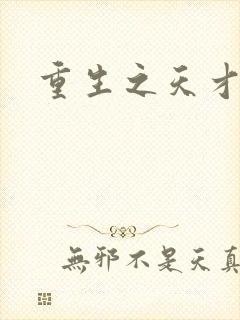 重生之天才
無邪不是天真